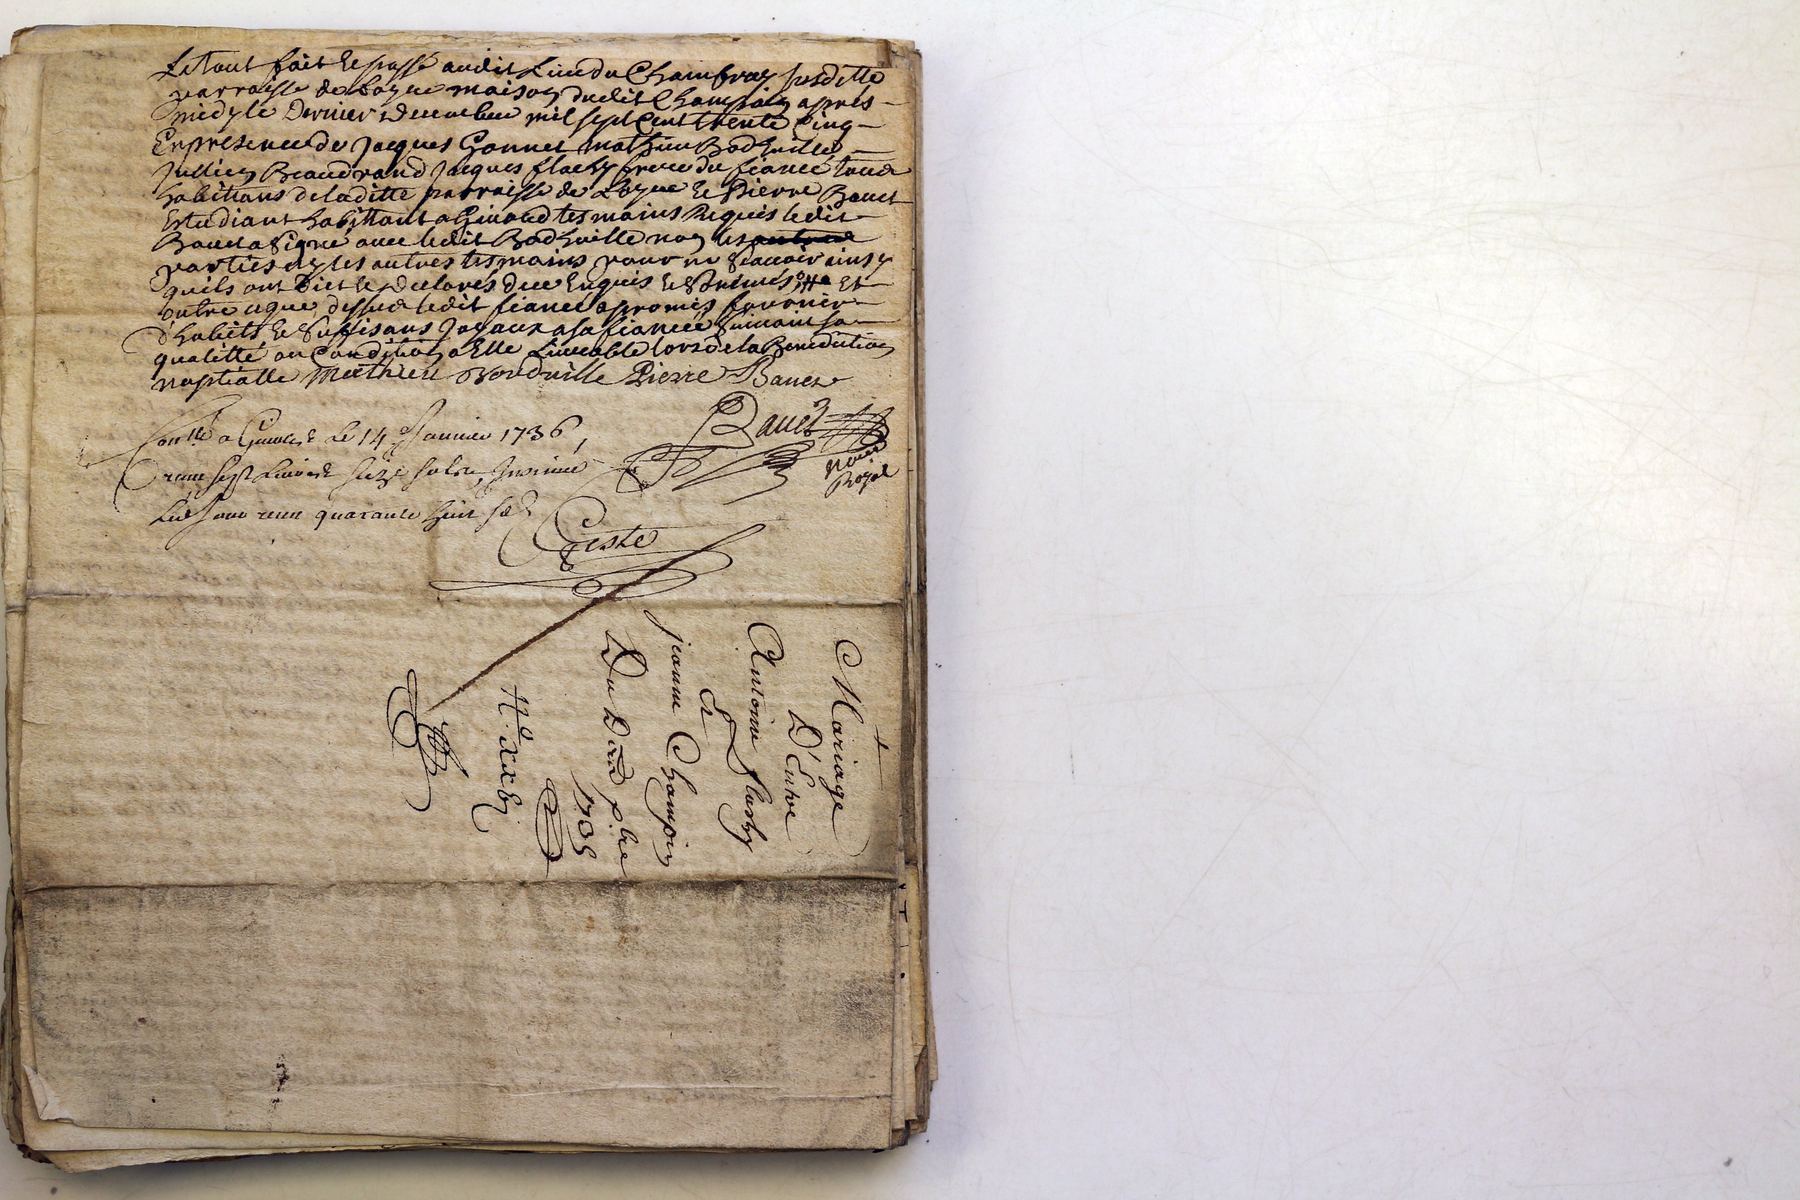 Le tout fait et passé audit Lieu du Chambray susditte
parroisse de Logne maison dudit Champoin après
midy le Dernier decembre mil sept Cent trente Cinq
En presence de Jacques Gonnet mathieu Bodhuille
Jullien Beaudrand Jacques flachy frere du fiancé tous
habitans de laditte parroisse de Logne et Pierre Bauet
Estudiant habittant a tesmoins Requis ledit
Bauet a signé avec ledit Bodhuille non les
parties ny les autres tesmoins pour ne scauoir ainsy
quils ont Dit et declarés deue Enquis et Et
outre ce que dessus ledit fiancé a promis fournir
d'habits et suffisans Joyaux a sa fiancée suivant sa
qualitté ou Condition a Elle Liurable lors de la Benediction
nuptialle Mathieu Bonduille Pierre Bauet
Conllé a le 14 Janvier 1736
sept Livres seize sols
quarante huit
Bauet
Royal
Ceste
Mariage
D'Entre
Antoine flachy
Et
jeanne Champoin
Du D
1735